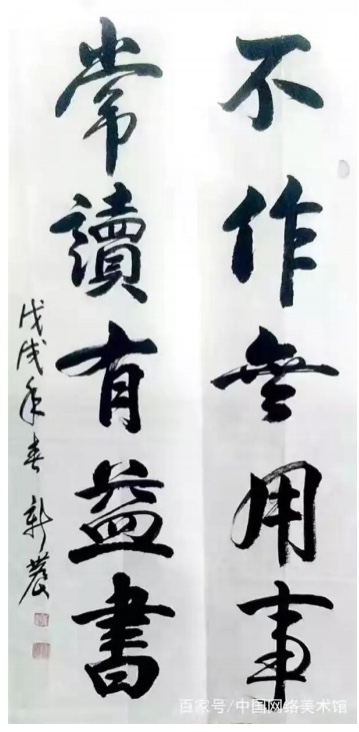 不作無用事
常讀有益書
戊戌年春新農
百家号/中国网络美术馆